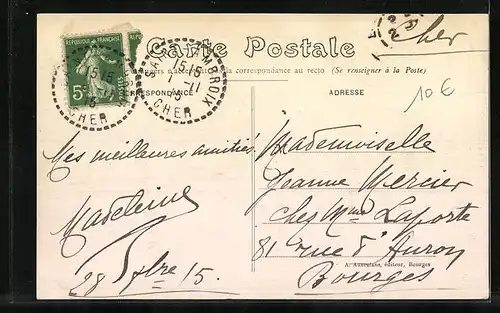 RÉPUBLIQUE FRANÇAISE
5c
POSTES
15-15
1-11
15
CHER
AMBROIX
15-15
1-11
15
CHER
Carte Postale
Cher
la correspondance au recto (Se renseigner à la Poste)
CORRESPONDANCE
ADRESSE
10€
Mes meilleures amitiés
Madeleine
28 8bre 15.
Mademoiselle
Jeanne Mercier
chez Mme Laporte
81 rue d'Auron
Bourges
éditeur, Bourges